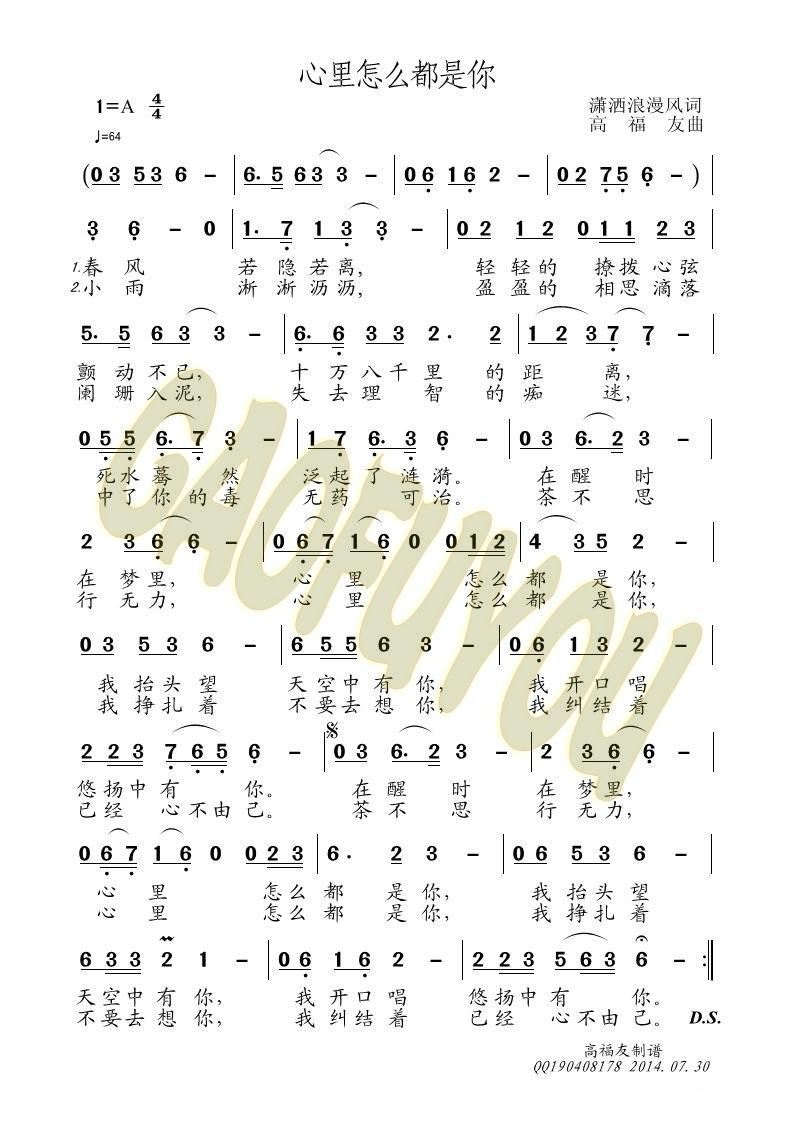 心里怎么都是你
1=A 4/4
潇洒浪漫风词
高 福 友曲
♩=64
(0 3 5 3 6 - | 6. 5 6 3 3 - | 0 6 1 6 2 - | 0 2 7 5 6 - ) |
3 6 - 0 | 1. 7 1 3 3 - | 0 2 1 2 0 1 1 2 3 |
1.春 风 若 隐 若 离, 轻 轻 的 撩 拨 心 弦
2.小 雨 淅 淅 沥 沥, 盈 盈 的 相 思 滴 落
5. 5 6 3 3 - | 6. 6 3 3 2. 2 | 1 2 3 7 7 - |
颤 动 不 已, 十 万 八 千 里 的 距 离,
阑 珊 入 泥, 失 去 理 智 的 痴 迷,
0 5 5 6. 7 3 - | 1 7 6. 3 6 - | 0 3 6. 2 3 - |
死 水 蓦 然 泛 起 了 涟 漪。 在 醒 时
中 了 你 的 毒 无 药 可 治。 茶 不 思
2 3 6 6 - | 0 6 7 1 6 0 0 1 2 | 4 3 5 2 - |
在 梦 里, 心 里 怎 么 都 是 你,
行 无 力, 心 里 怎 么 都 是 你,
0 3 5 3 6 - | 6 5 5 6 3 - | 0 6 1 3 2 - |
我 抬 头 望 天 空 中 有 你, 我 开 口 唱
我 挣 扎 着 不 要 去 想 你, 我 纠 结 着
2 2 3 7 6 5 6 - | 0 3 6. 2 3 - | 2 3 6 6 - |
悠 扬 中 有 你。 在 醒 时 在 梦 里,
已 经 心 不 由 己。 茶 不 思 行 无 力,
0 6 7 1 6 0 0 2 3 | 6. 2 3 - | 0 6 5 3 6 - |
心 里 怎 么 都 是 你, 我 抬 头 望
心 里 怎 么 都 是 你, 我 挣 扎 着
6 3 3 2 1 - | 0 6 1 6 2 - | 2 2 3 5 6 3 6 - :||
天 空 中 有 你, 我 开 口 唱 悠 扬 中 有 你。
不 要 去 想 你, 我 纠 结 着 已 经 心 不 由 己。 D.S.
高福友制谱
QQ190408178 2014.07.30
GAOFUYOU